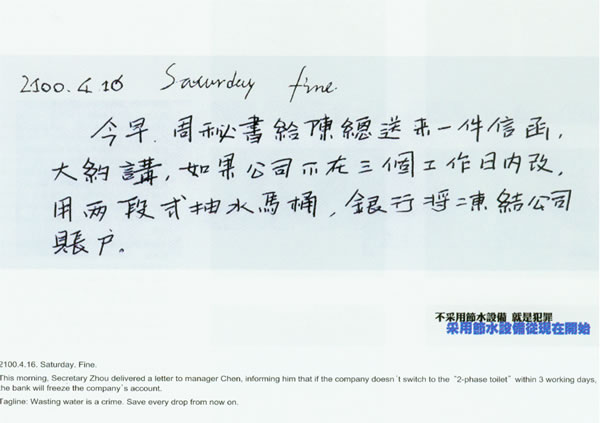 2100.4.16 Saturday fine.
今早，周秘書給陳總送来一件信函，
大約講，如果公司不在三個工作日内改，
用两段式抽水馬桶，銀行將凍結公司
賬户。
不采用節水設備 就是犯罪
采用節水設備從現在開始
2100.4.16. Saturday. Fine.
This morning, Secretary Zhou delivered a letter to manager Chen, informing him that if the company doesn´t switch to the "2-phase toilet" within 3 working days,
the bank will freeze the company´s account.
Tagline: Wasting water is a crime. Save every drop from now on.